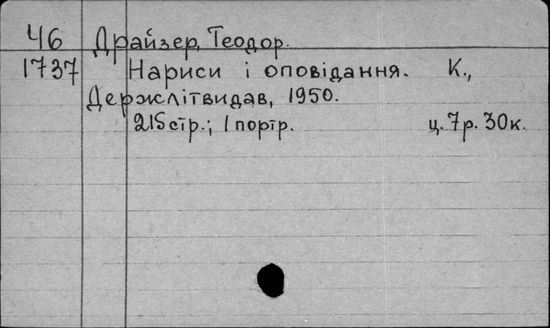 Ч6 Драйзер, Теодор.
1737 Нариси і оповідання. К.,
Держлітвидав, 1950.
215 стр.; 1 портр. ц. 7р. 30к.